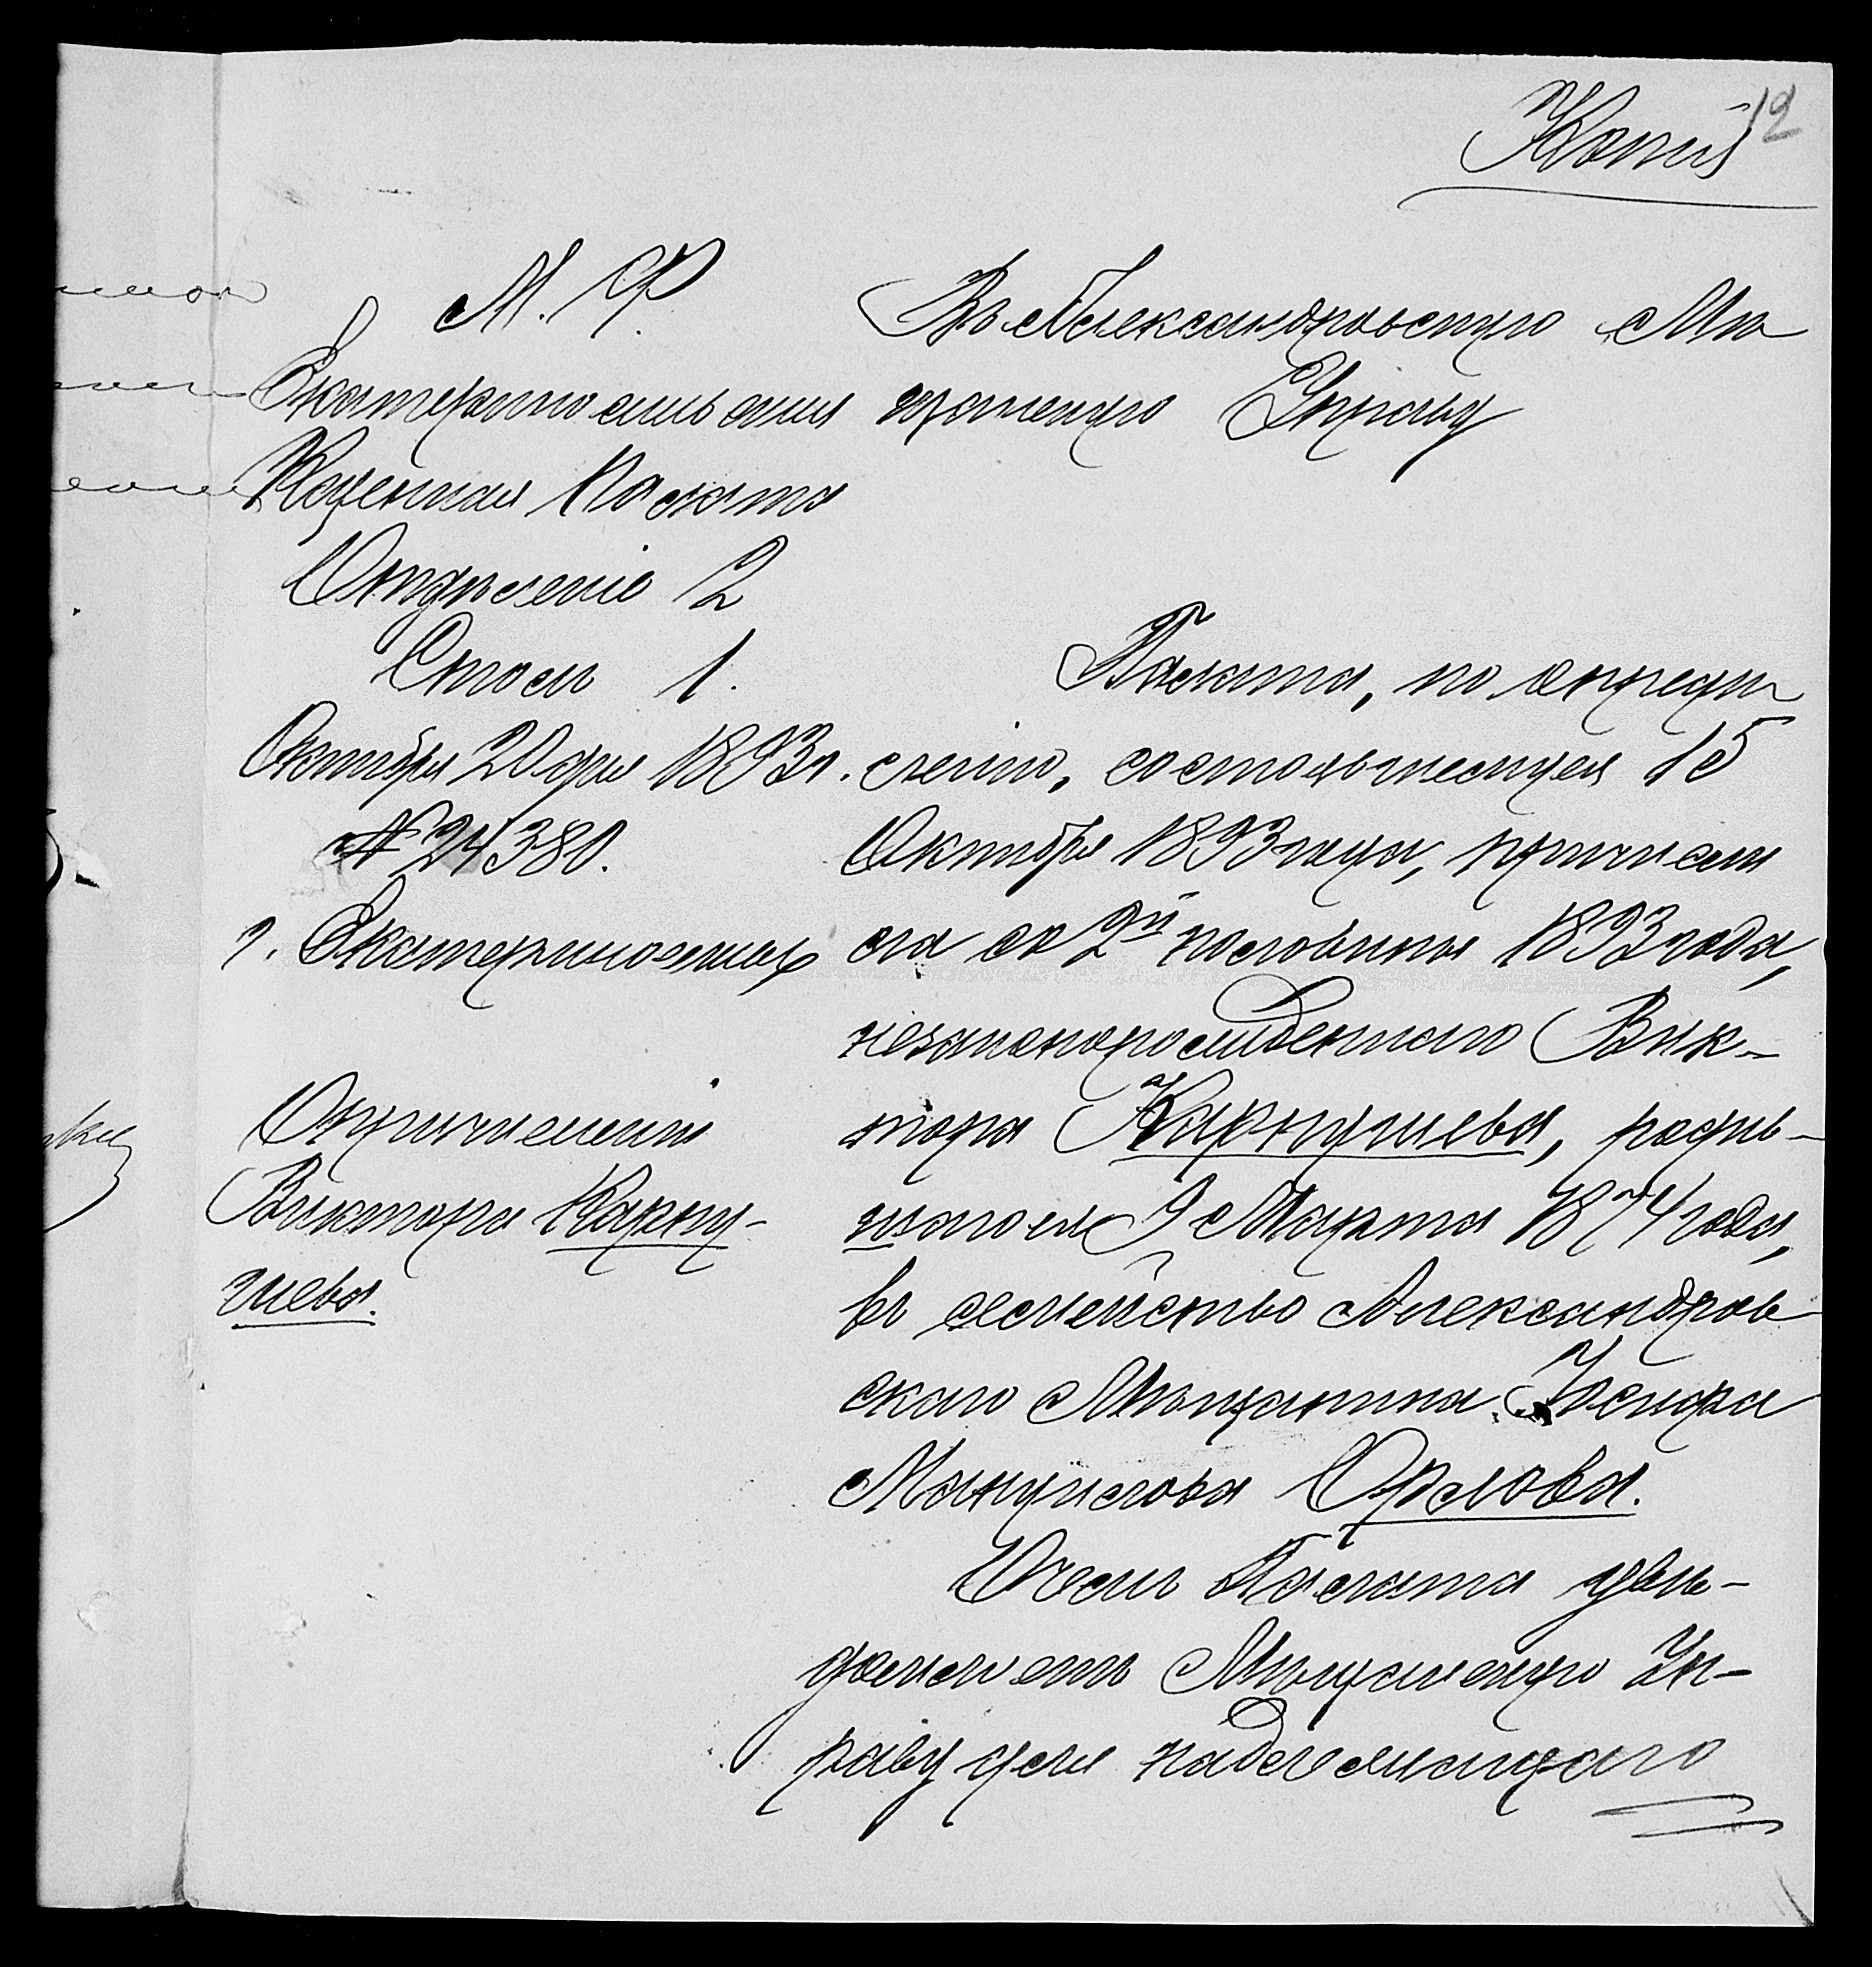 12
Копія
М. Ф.
Екатеринославская
Казенная Палата
Отдѣленіе 2
Столъ 1.
Октября 20 дня 1893 г.
№ 24380.
г. Екатеринославъ
О причисленіи
Виктора Карпу-
шева.
Въ Александровскую Мѣ
щанскую Управу
Палата, по опредѣ
ленію, состоявшемуся 15
Октября 1893 года, причисли
ла со 2й половины 1893 года,
незаконорожденнаго Вик-
тора Карпушева, родив-
шагося 9 Марта 1874 года,
въ семейство Александров
скаго Мѣщанина
Мануилова Орлова.
О чемъ Палата увѣ-
домляетъ Мѣщанскую Уп-
раву для надлежащаго